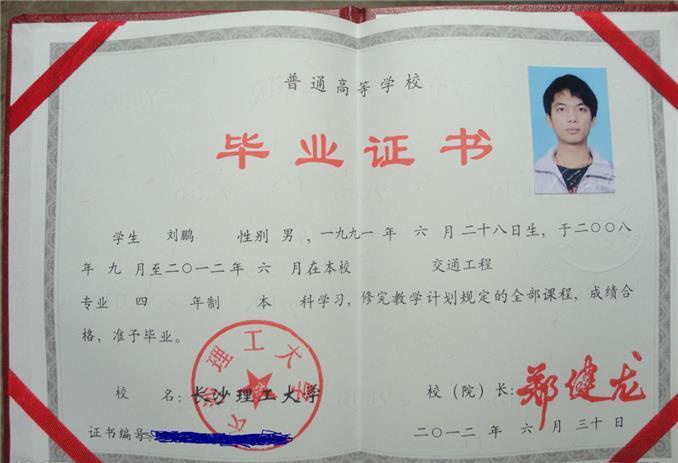 普通高等学校
毕业证书
学生 刘鹏 性别 男，一九九一年 六 月 二十八日生，于二〇〇八
年 九 月至二〇一二年 六 月在本校 交通工程
专业 四 年制 本 科学习，修完教学计划规定的全部课程，成绩合
格，准予毕业。
校 名：长沙理工大学
校（院）长：郑健龙
证书编号：
二〇一二年 六 月 三十日
长沙理工大学